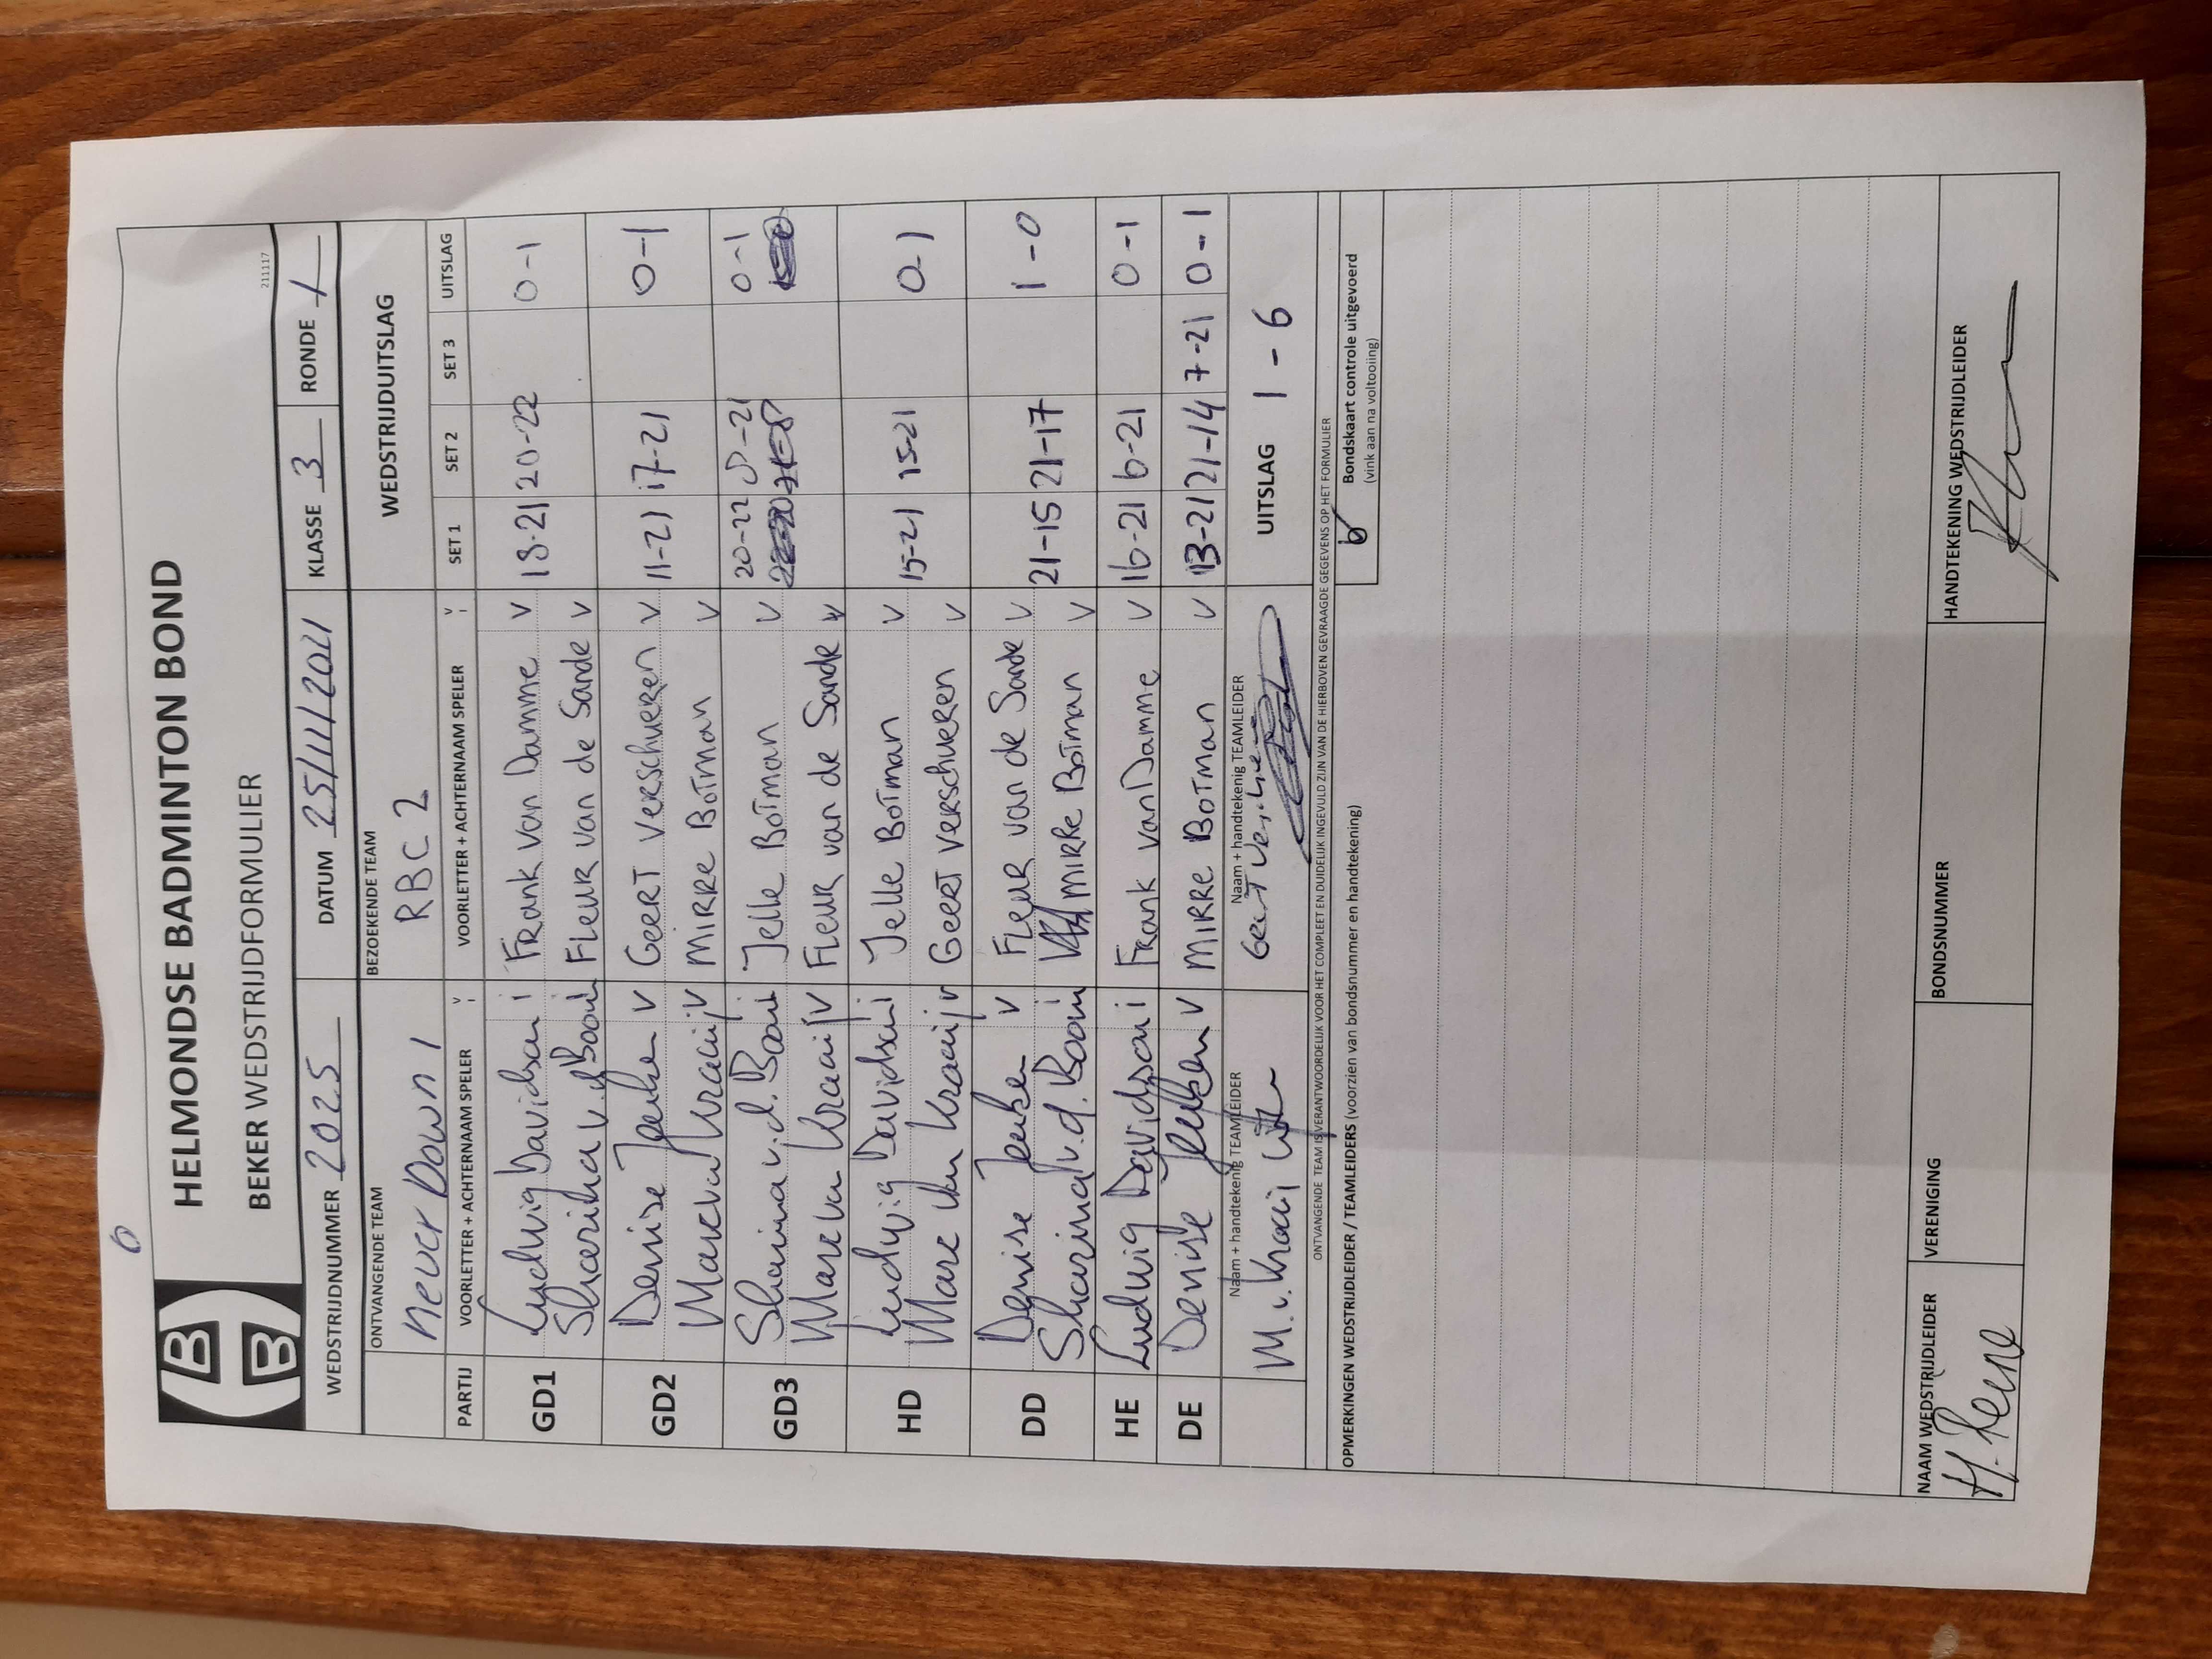 HELMONDSE BADMINTON BOND
BEKER WEDSTRIJDFORMULIER
211117
WEDSTRIJDNUMMER 2025 DATUM 25/11/2021 KLASSE 3 RONDE 1
ONTVANGENDE TEAM BEZOEKENDE TEAM WEDSTRIJDUITSLAG
Never Down 1 RBC 2
PARTIJ VOORLETTER + ACHTERNAAM SPELER V VOORLETTER + ACHTERNAAM SPELER V SET 1 SET 2 SET 3 UITSLAG
GD1 Ludwig Davidson Frank van Damme V 18-21 20-22 0-1
Sharina v.d. Boom Fleur van de Sande V
GD2 Denise Jenken V Geert Verschueren V 11-21 17-21 0-1
Marc van Kraaij V Mirre Botman V
GD3 Sharina v.d. Boom Jelle Botman V 20-22 8-21 0-1
Marc van Kraaij V Fleur van de Sande V
HD Ludwig Davidson Jelle Botman V 15-21 15-21 0-1
Marc van Kraaij V Geert Verschueren V
DD Denise Jenken V Fleur van de Sande V 21-15 21-17 1-0
Sharina v.d. Boom Mirre Botman V
HE Ludwig Davidson Frank van Damme V 16-21 6-21 0-1
DE Denise Jenken V Mirre Botman V 13-21 21-14 7-21 0-1
Naam + handtekenig TEAMLEIDER Naam + handtekenig TEAMLEIDER
M. v. Kraaij Geert UITSLAG 1-6
ONTVANGENDE TEAM IS VERANTWOORDELIJK VOOR HET COMPLEET EN DUIDELIJK INGEVULD ZIJN VAN DE HIERBOVEN GEVRAAGDE GEGEVENS OP HET FORMULIER
OPMERKINGEN WEDSTRIJDLEIDER / TEAMLEIDERS (voorzien van bondsnummer en handtekening) Bondskaart controle uitgevoerd
(vink aan na voltooiing)
NAAM WEDSTRIJDLEIDER VERENIGING BONDSNUMMER HANDTEKENING WEDSTRIJDLEIDER